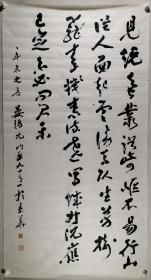 見說蠶叢路崎嶇不易行山
從人面起雲傍馬頭生芳樹
籠秦棧春流遶蜀城升沉應
已定不必問君平
晏濟元